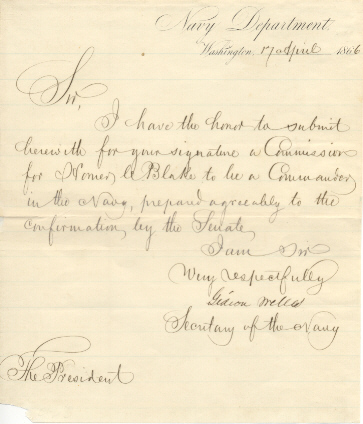 Navy Department,
Washington, 17 April 1866
Sir,
I have the honor to submit
herewith for your signature a Commission
for Homer C Blake to be a Commander
in the Navy, prepared agreeably to the
confirmation by the Senate.
I am Sir
Very respectfully
Gideon Welles
Secretary of the Navy
The President